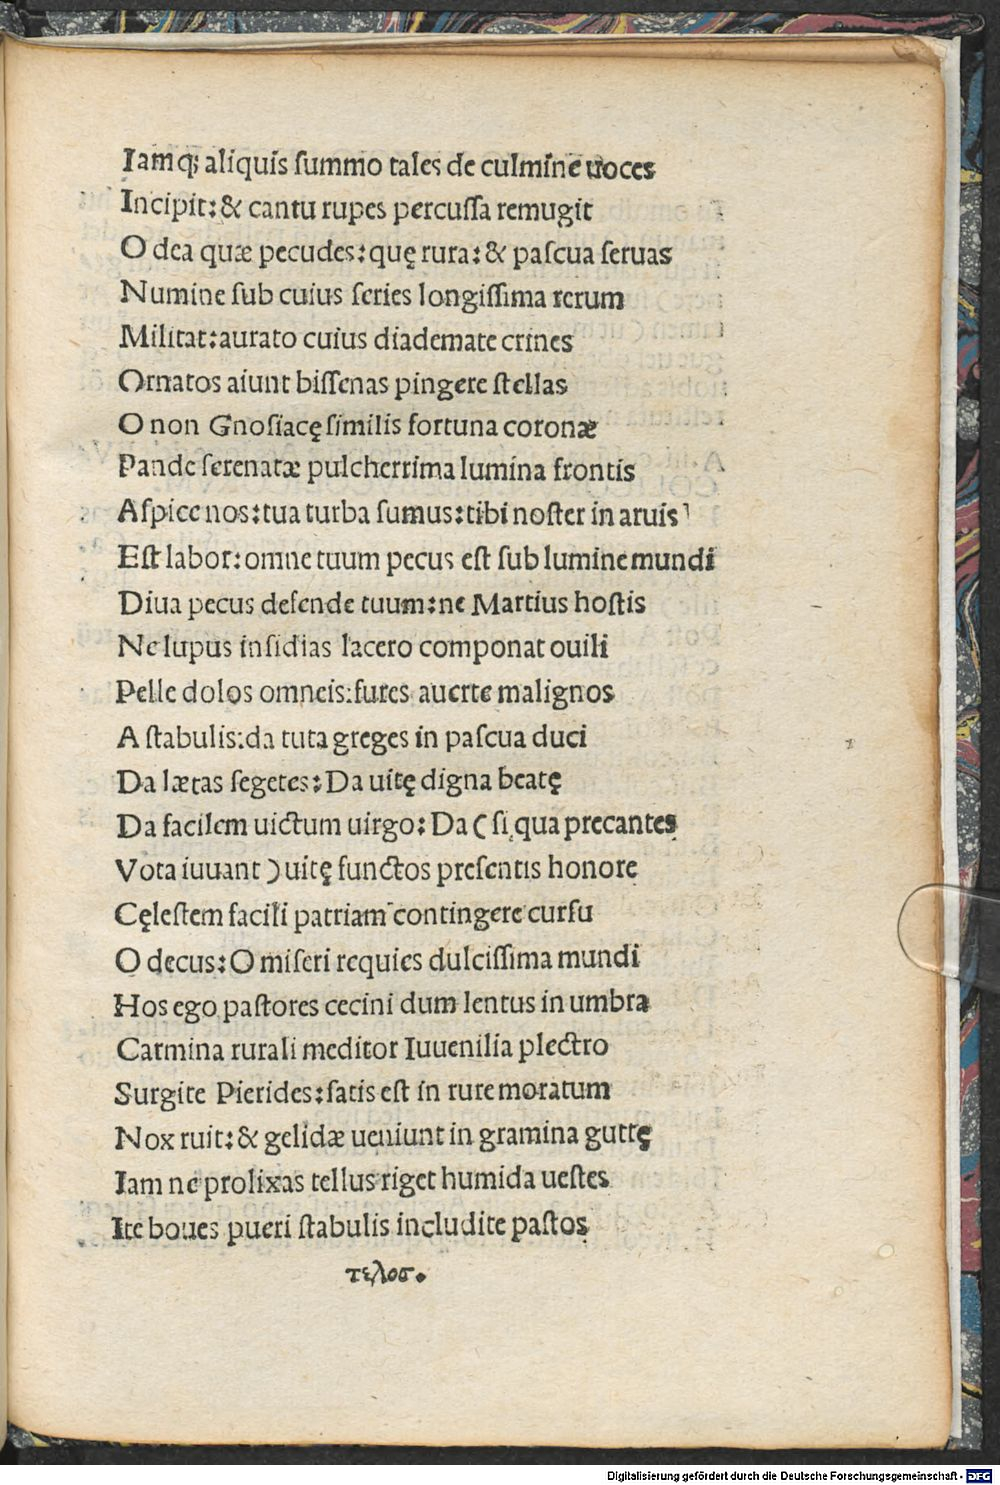 Iamq; aliquis ſummo tales de culmine uoces
Incipit: & cantu rupes percuſſa remugit
O dea quæ pecudes: quę rura: & paſcua ſeruas
Numine ſub cuius ſeries longiſſima rerum
Militat: aurato cuius diademate crines
Ornatos aiunt biſſenas pingere ſtellas
O non Gnoſiacę ſimilis fortuna coronæ
Pande ſerenatæ pulcherrima lumina frontis
Aſpice nos: tua turba ſumus: tibi noſter in aruis
Eſt labor: omne tuum pecus eſt ſub lumine mundi
Diua pecus defende tuum: ne Martius hoſtis
Ne lupus inſidias lacero componat ouili
Pelle dolos omneis: fures auerte malignos
A ſtabulis: da tuta greges in paſcua duci
Da lætas ſegetes: Da uitę digna beatę
Da facilem uictum uirgo: Da ( ſi qua precantes
Vota iuuant ) uitę functos preſentis honore
Cęleſtem facili patriam contingere curſu
O decus: O miſeri requies dulciſſima mundi
Hos ego paſtores cecini dum lentus in umbra
Carmina rurali meditor Iuuenilia plectro
Surgite Pierides: ſatis eſt in rure moratum
Nox ruit: & gelidæ ueniunt in gramina guttę
Iam ne prolixas tellus riget humida ueſtes
Ite boues pueri ſtabulis includite paſtos
τελος.
Digitalisierung gefördert durch die Deutsche Forschungsgemeinschaft - DFG